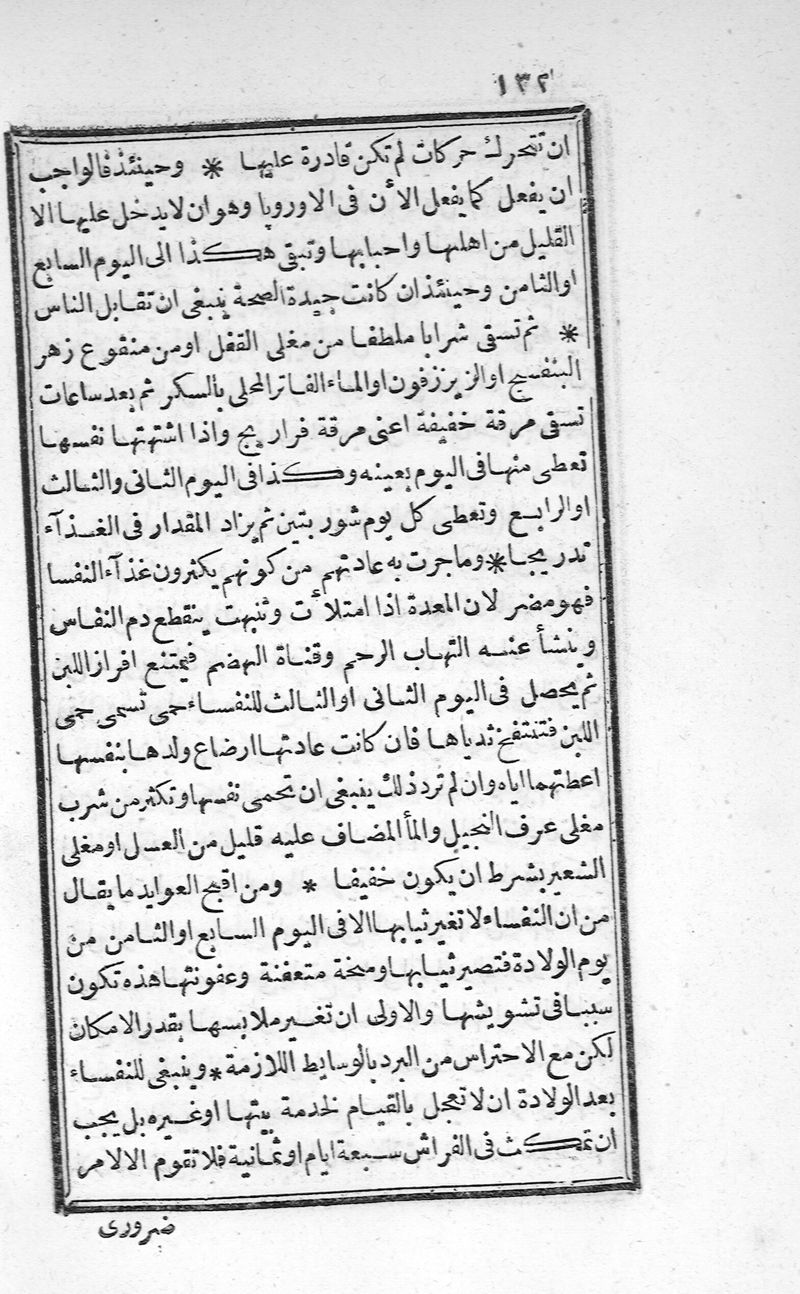 ١٣٢
ان تتحرك حركات لم تكن قادرة عليها * وحينئذ فالواجب
ان يفعل كما يفعل الأن فى الاوروپا وهو ان لا يدخل عليها الا
القليل من اهلها واحبابها وتبقى هكذا الى اليوم السابع
او الثامن وحينئذ ان كانت جيدة الصحة ينبغى ان تقابل الناس
* ثم تسقى شرابا ملطفا من مغلى القفل او من منقوع زهر
البنفسج او الزيرزفون او الماء الفاتر المحلى بالسكر ثم بعد ساعات
تسقى مرقة خفيفة اعنى مرقة فراريج واذا اشتهتها نفسها
تعطى منها فى اليوم بعينه وكذا فى اليوم الثانى والثالث
او الرابع وتعطى كل يوم شوربتين ثم يزاد المقدار فى الغذآء
تدريجا * وما جرت به عادتهم من كونهم يكثرون غذآء النفسا
فهو مضر لان المعدة اذا امتلأت وتنبهت ينقطع دم النفاس
وينشأ عنه التهاب الرحم وقناة الهضم فيمتنع افراز اللبن
ثم يحصل فى اليوم الثانى او الثالث للنفساء حمى تسمى حمى
اللبن فتنتفخ ثدياها فان كانت عادتها ارضاع ولدها بنفسها
اعطتهما اياه وان لم ترد ذلك ينبغى ان تحمى نفسها وتكثر من شرب
مغلى عرف النجيل والمأ المضاف عليه قليل من العسل او مغلى
الشعير بشرط ان يكون خفيفا * ومن اقبح العوايد ما يقال
من ان النفساء لا تغير ثيابها الا فى اليوم السابع او الثامن من
يوم الولادة فتصير ثيابها وسخة متعفنة وعفونتها هذه تكون
سببا فى تشويشها والاولى ان تغير ملابسها بقدر الامكان
لكن مع الاحتراس من البرد بالوسايط اللازمة * وينبغى للنفساء
بعد الولادة ان لا تعجل بالقيام لخدمة بيتها او غيره بل يجب
ان تمكث فى الفراش سبعة ايام او ثمانية فلا تقوم الا لامر
ضرورى